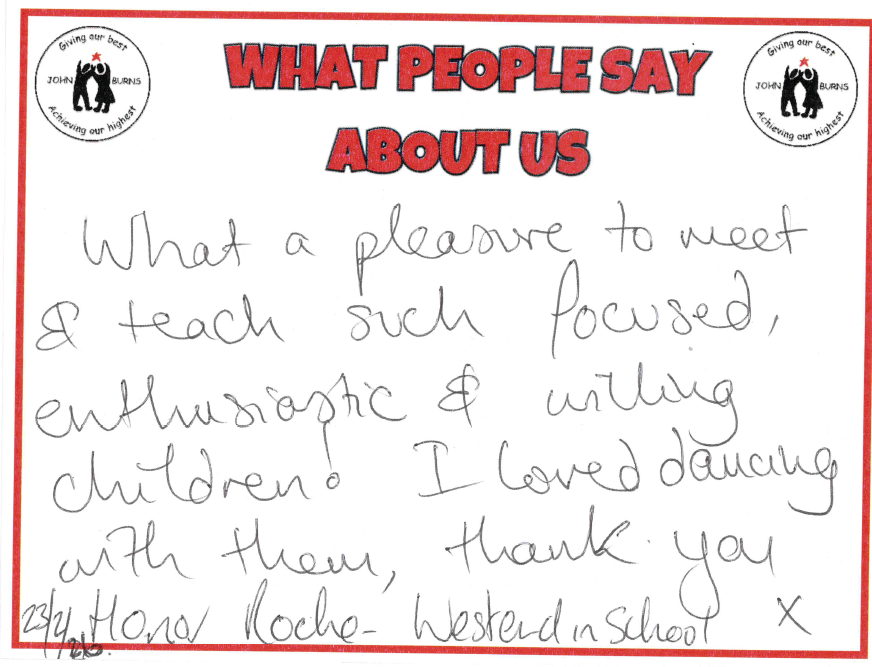 Giving our best
JOHN BURNS
Achieving our highest
WHAT PEOPLE SAY
ABOUT US
Giving our best
JOHN BURNS
Achieving our highest
What a pleasure to meet
& teach such focused,
enthusiastic & willing
children! I loved dancing
with them, thank you
Honor Roche - Westend in School X